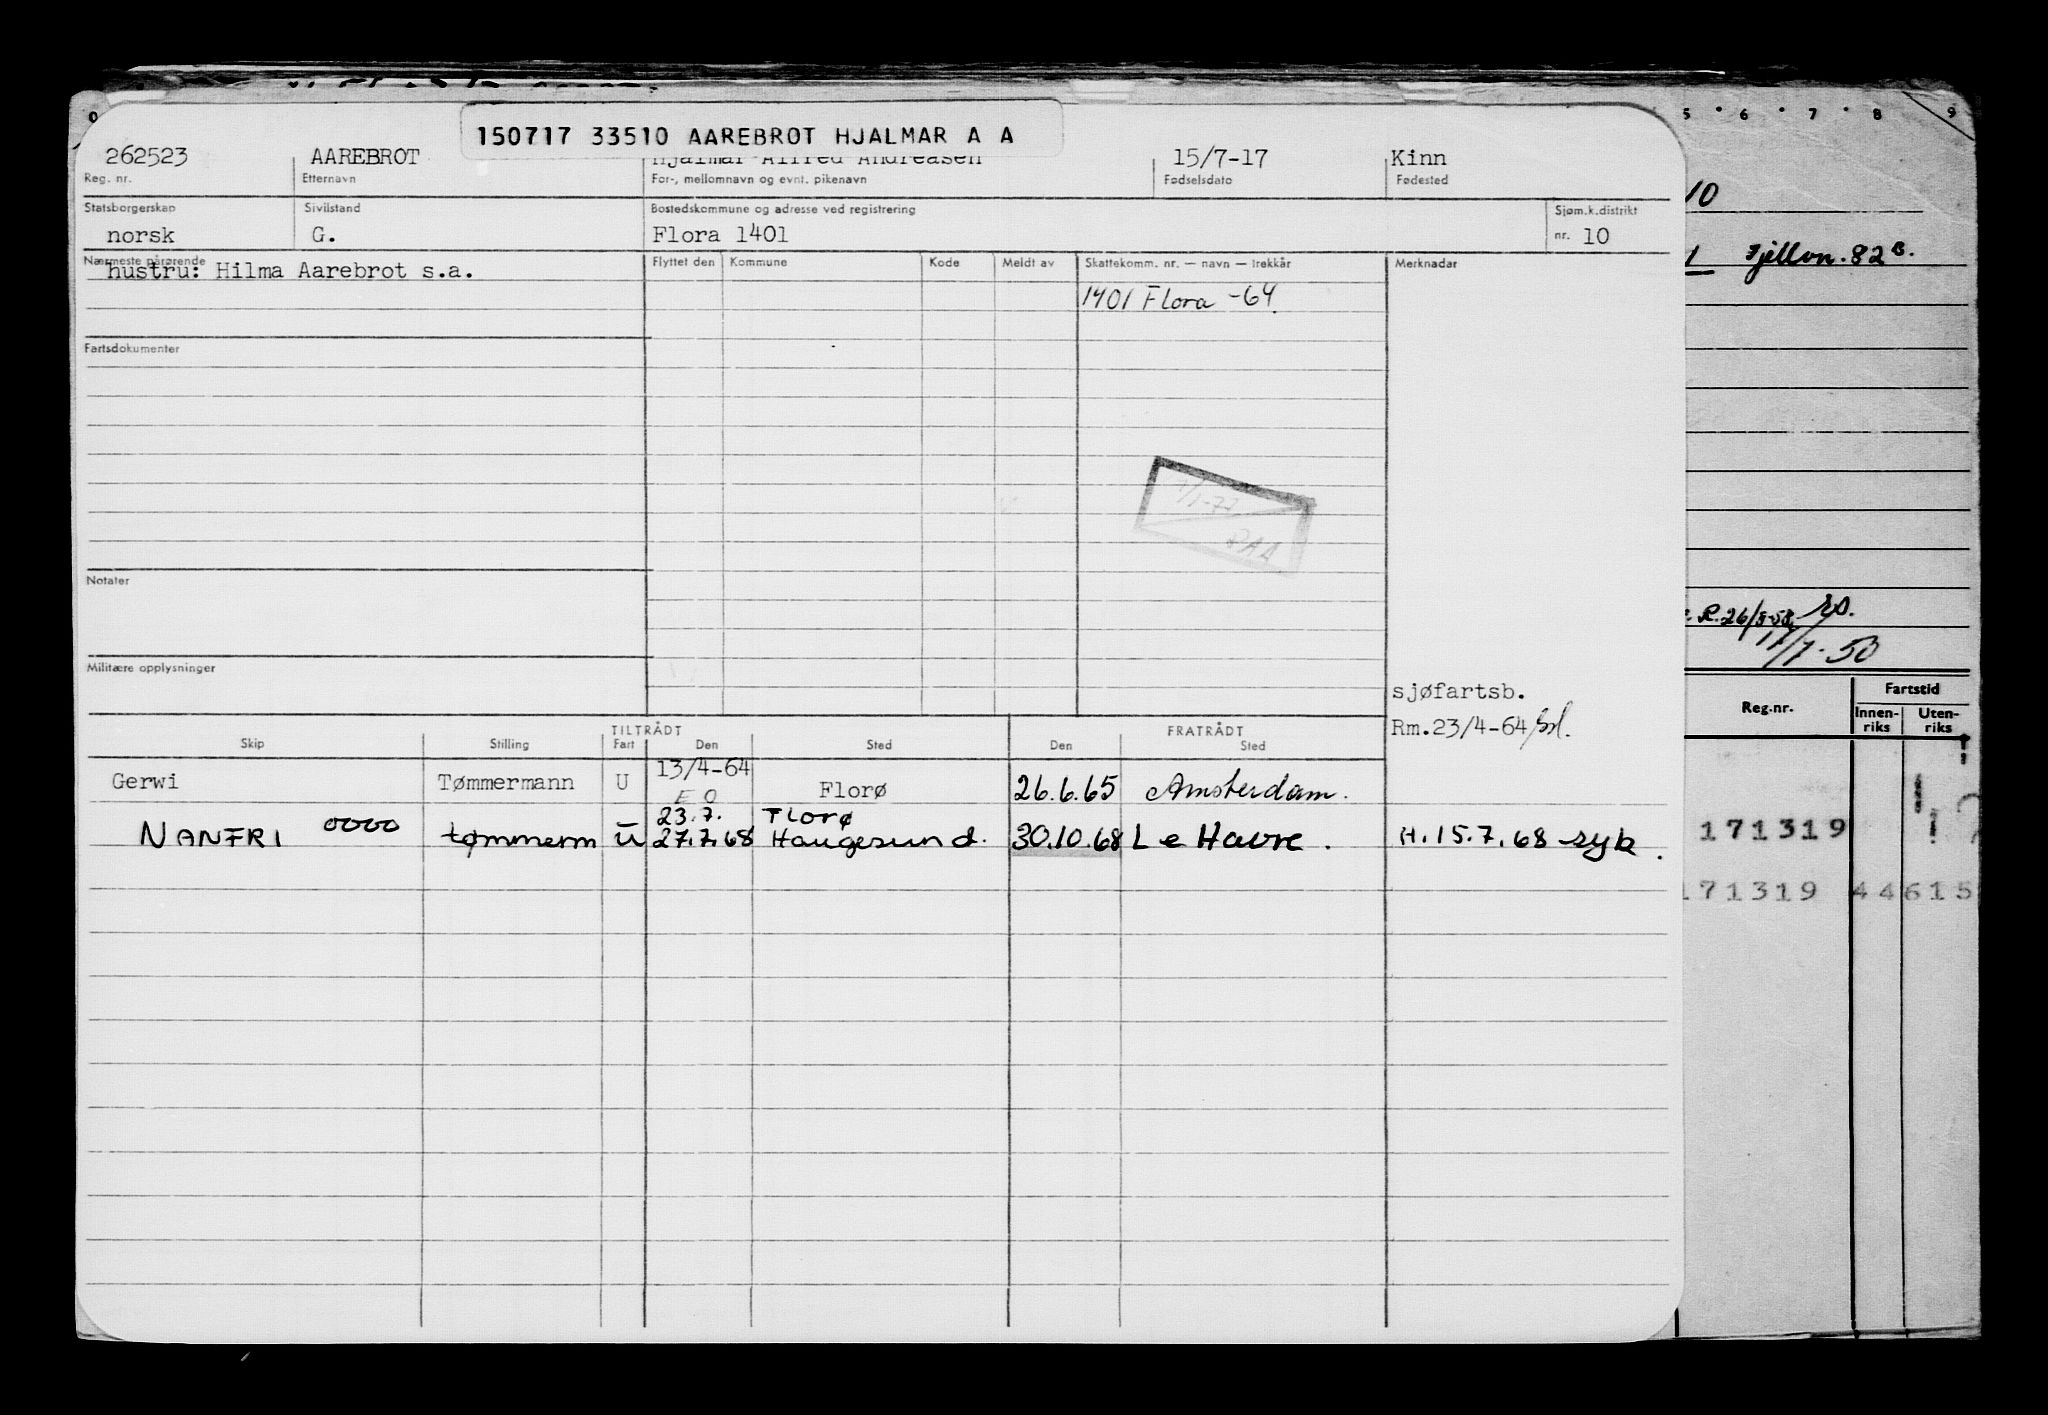 150717 33510 AAREBROT HJALMAR A A
262523 AAREBROT Hjalmar Alfred Andreasen 15/7-17 Kinn
Reg. nr. Etternavn For-, mellomnavn og evnt. pikenavn Fødselsdato Fødested
Statsborgerskap Sivilstand Bostedskommune og adresse ved registrering Sjøm.k.distrikt
norsk G. Flora 1401 nr. 10
Nærmeste pårørende Flyttet den Kommune Kode Meldt av Skattekomm. nr. — navn — trekkår Merknader
hustru: Hilma Aarebrot s.a.
1401 Flora -64
Fartsdokumenter
1/1-77
Notater
Militære opplysninger
sjøfartsb.
Rm.23/4-64
TILTRÅDT FRATRÅDT
Skip Stilling Fart Den Sted Den Sted
Gerwi Tømmermann U 13/4-64 Florø 26.6.65 Amsterdam.
E O
23.7. Florø
NANFRI 0000 tømmerm U 27.7.68 Haugesund. 30.10.68 Le Havre. H.15.7.68 syk.
5 6 7 8 9
10
1 Fjellvn. 82 B.
R.26/8-58
11/7-50
Reg.nr. Fartstid
Innen-riks Uten-riks
171319
171319 44 615